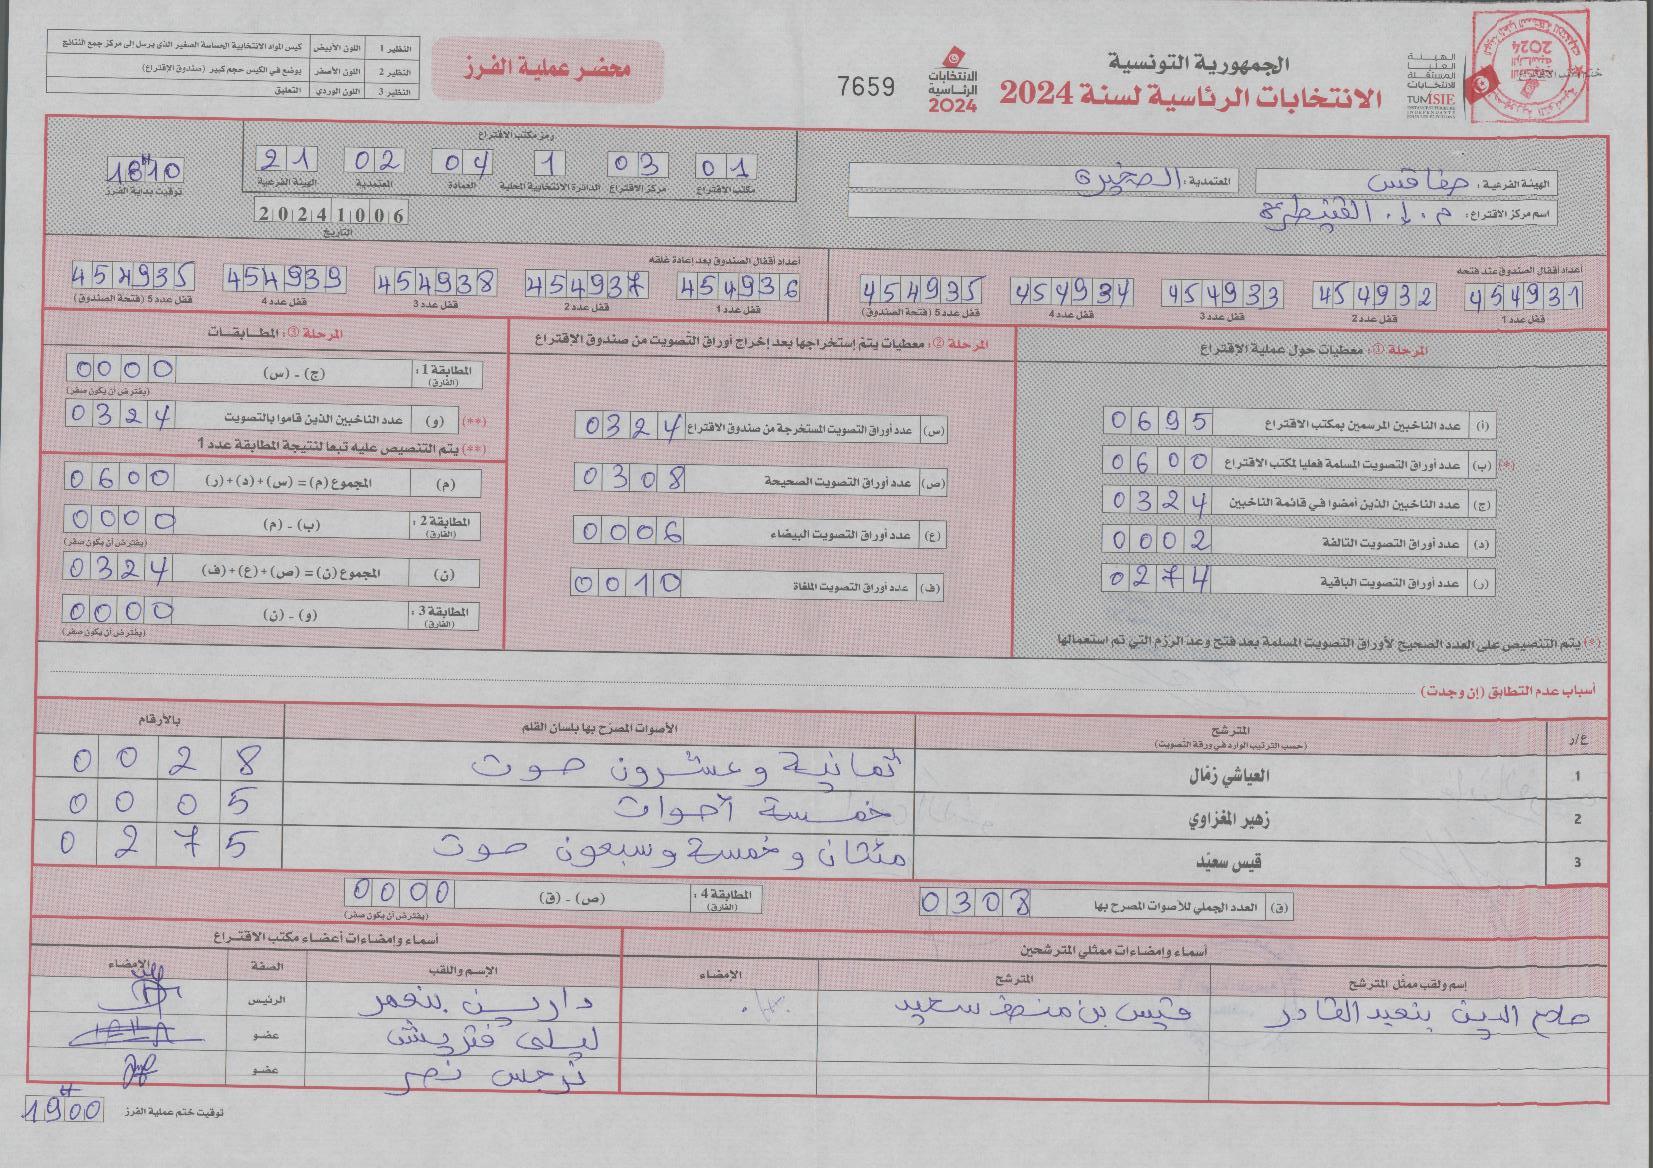 الجمهورية التونسية
الانتخابات الرئاسية لسنة 2024
الهيئة
العليا
المستقلة
للانتخابات
TUNISIE
الانتخابات
الرئاسية
2024
7659
محضر عملية الفرز
النظير 1 اللون الأبيض كيس المواد الانتخابية الحساسة الصغير الذي يرسل إلى مركز جمع النتائج
النظير 2 اللون الأصفر يوضع في الكيس حجم كبير (صندوق الإقتراع)
النظير 3 اللون الوردي التعليق
الهيئة الفرعية: صفاقس المعتمدية: الصخيرة
اسم مركز الاقتراع: م. إ. القنيطرة
رمز مكتب الاقتراع
01 03 1 04 02 21
مكتب الاقتراع مركز الاقتراع الدائرة الانتخابية المحلية العمادة المعتمدية الهيئة الفرعية
20241006
التاريخ
18H10
توقيت بداية الفرز
أعداد أقفال الصندوق عند فتحه
454931 454932 454933 454934 454935
قفل عدد 1 قفل عدد 2 قفل عدد 3 قفل عدد 4 قفل عدد 5 (فتحة الصندوق)
أعداد أقفال الصندوق بعد إعادة غلقه
454936 454937 454938 454939 454935
قفل عدد 1 قفل عدد 2 قفل عدد 3 قفل عدد 4 قفل عدد 5 (فتحة الصندوق)
المرحلة ①: معطيات حول عملية الاقتراع
(أ) عدد الناخبين المرسمين بمكتب الاقتراع 0695
(*) (ب) عدد أوراق التصويت المسلمة فعليا لمكتب الاقتراع 0600
(ج) عدد الناخبين الذين أمضوا في قائمة الناخبين 0324
(د) عدد أوراق التصويت التالفة 0002
(ر) عدد أوراق التصويت الباقية 0274
(*) يتم التنصيص على العدد الصحيح لأوراق التصويت المسلمة بعد فتح وعد الرزم التي تم استعمالها
المرحلة ②: معطيات يتم إستخراجها بعد إخراج أوراق التصويت من صندوق الاقتراع
(س) عدد أوراق التصويت المستخرجة من صندوق الاقتراع 0324
(ص) عدد أوراق التصويت الصحيحة 0308
(ع) عدد أوراق التصويت البيضاء 0006
(ف) عدد أوراق التصويت الملغاة 0010
المرحلة ③: المطابقات
المطابقة 1: (الفارق) (ج) - (س) 0000
(يفترض أن يكون صفر)
(**) (و) عدد الناخبين الذين قاموا بالتصويت 0324
(**) يتم التنصيص عليه تبعا لنتيجة المطابقة عدد 1
(م) المجموع (م) = (س) + (د) + (ر) 0600
المطابقة 2: (الفارق) (ب) - (م) 0000
(يفترض أن يكون صفر)
(ن) المجموع (ن) = (ص) + (ع) + (ف) 0324
المطابقة 3: (الفارق) (و) - (ن) 0000
(يفترض أن يكون صفر)
أسباب عدم التطابق (إن وجدت)
ع/ر المترشح (حسب الترتيب الوارد في ورقة التصويت) الأصوات المصرح بها بلسان القلم بالأرقام
1 العياشي زمّال ثمانية وعشرون صوت 0028
2 زهير المغزاوي خمسة أصوات 0005
3 قيس سعيّد مئتان وخمسة وسبعون صوت 0275
(ق) العدد الجملي للأصوات المصرح بها 0308
المطابقة 4: (الفارق) (ص) - (ق) 0000
(يفترض أن يكون صفر)
أسماء وإمضاءات ممثلي المترشحين
إسم ولقب ممثل المترشح المترشح الإمضاء
صلاح الدين بنعبد القادر قيس بن منصف سعيد
أسماء وإمضاءات أعضاء مكتب الاقتراع
الإسم واللقب الصفة الإمضاء
دارين بنعمر الرئيس
ليلى فتريش عضو
نرجس نصر عضو
توقيت ختم عملية الفرز 19H00